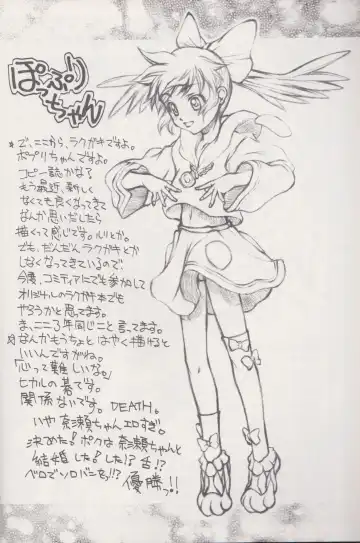 ぽっぷり
ちゃん
*で、ここから、ラクガキですよ。
ポプリちゃんですよ。
コピー誌かな?
もう最近、新しく
なくても良くなってきて
なんか思いだしたら
描くって感じです。ルリとか。
でも、だんだんラクガキとか
しなくなってきているので、
今度、コミティアにでも参加して
オリジナルのラクガキ本でも
やろうかと思ってます。
ま、ここ2年同じこと言ってます。
*なんかもうちょとはやく描けると
いいんですがね。
「心って難しいな。」
ヒカルの碁です。
関係ないです。DEATH。
いや奈瀬ちゃんエロすぎ。
決めた!ボクは奈瀬ちゃんと
結婚した!した!?舌!?
ベロでソロバンをっ!!?
優勝っ!!